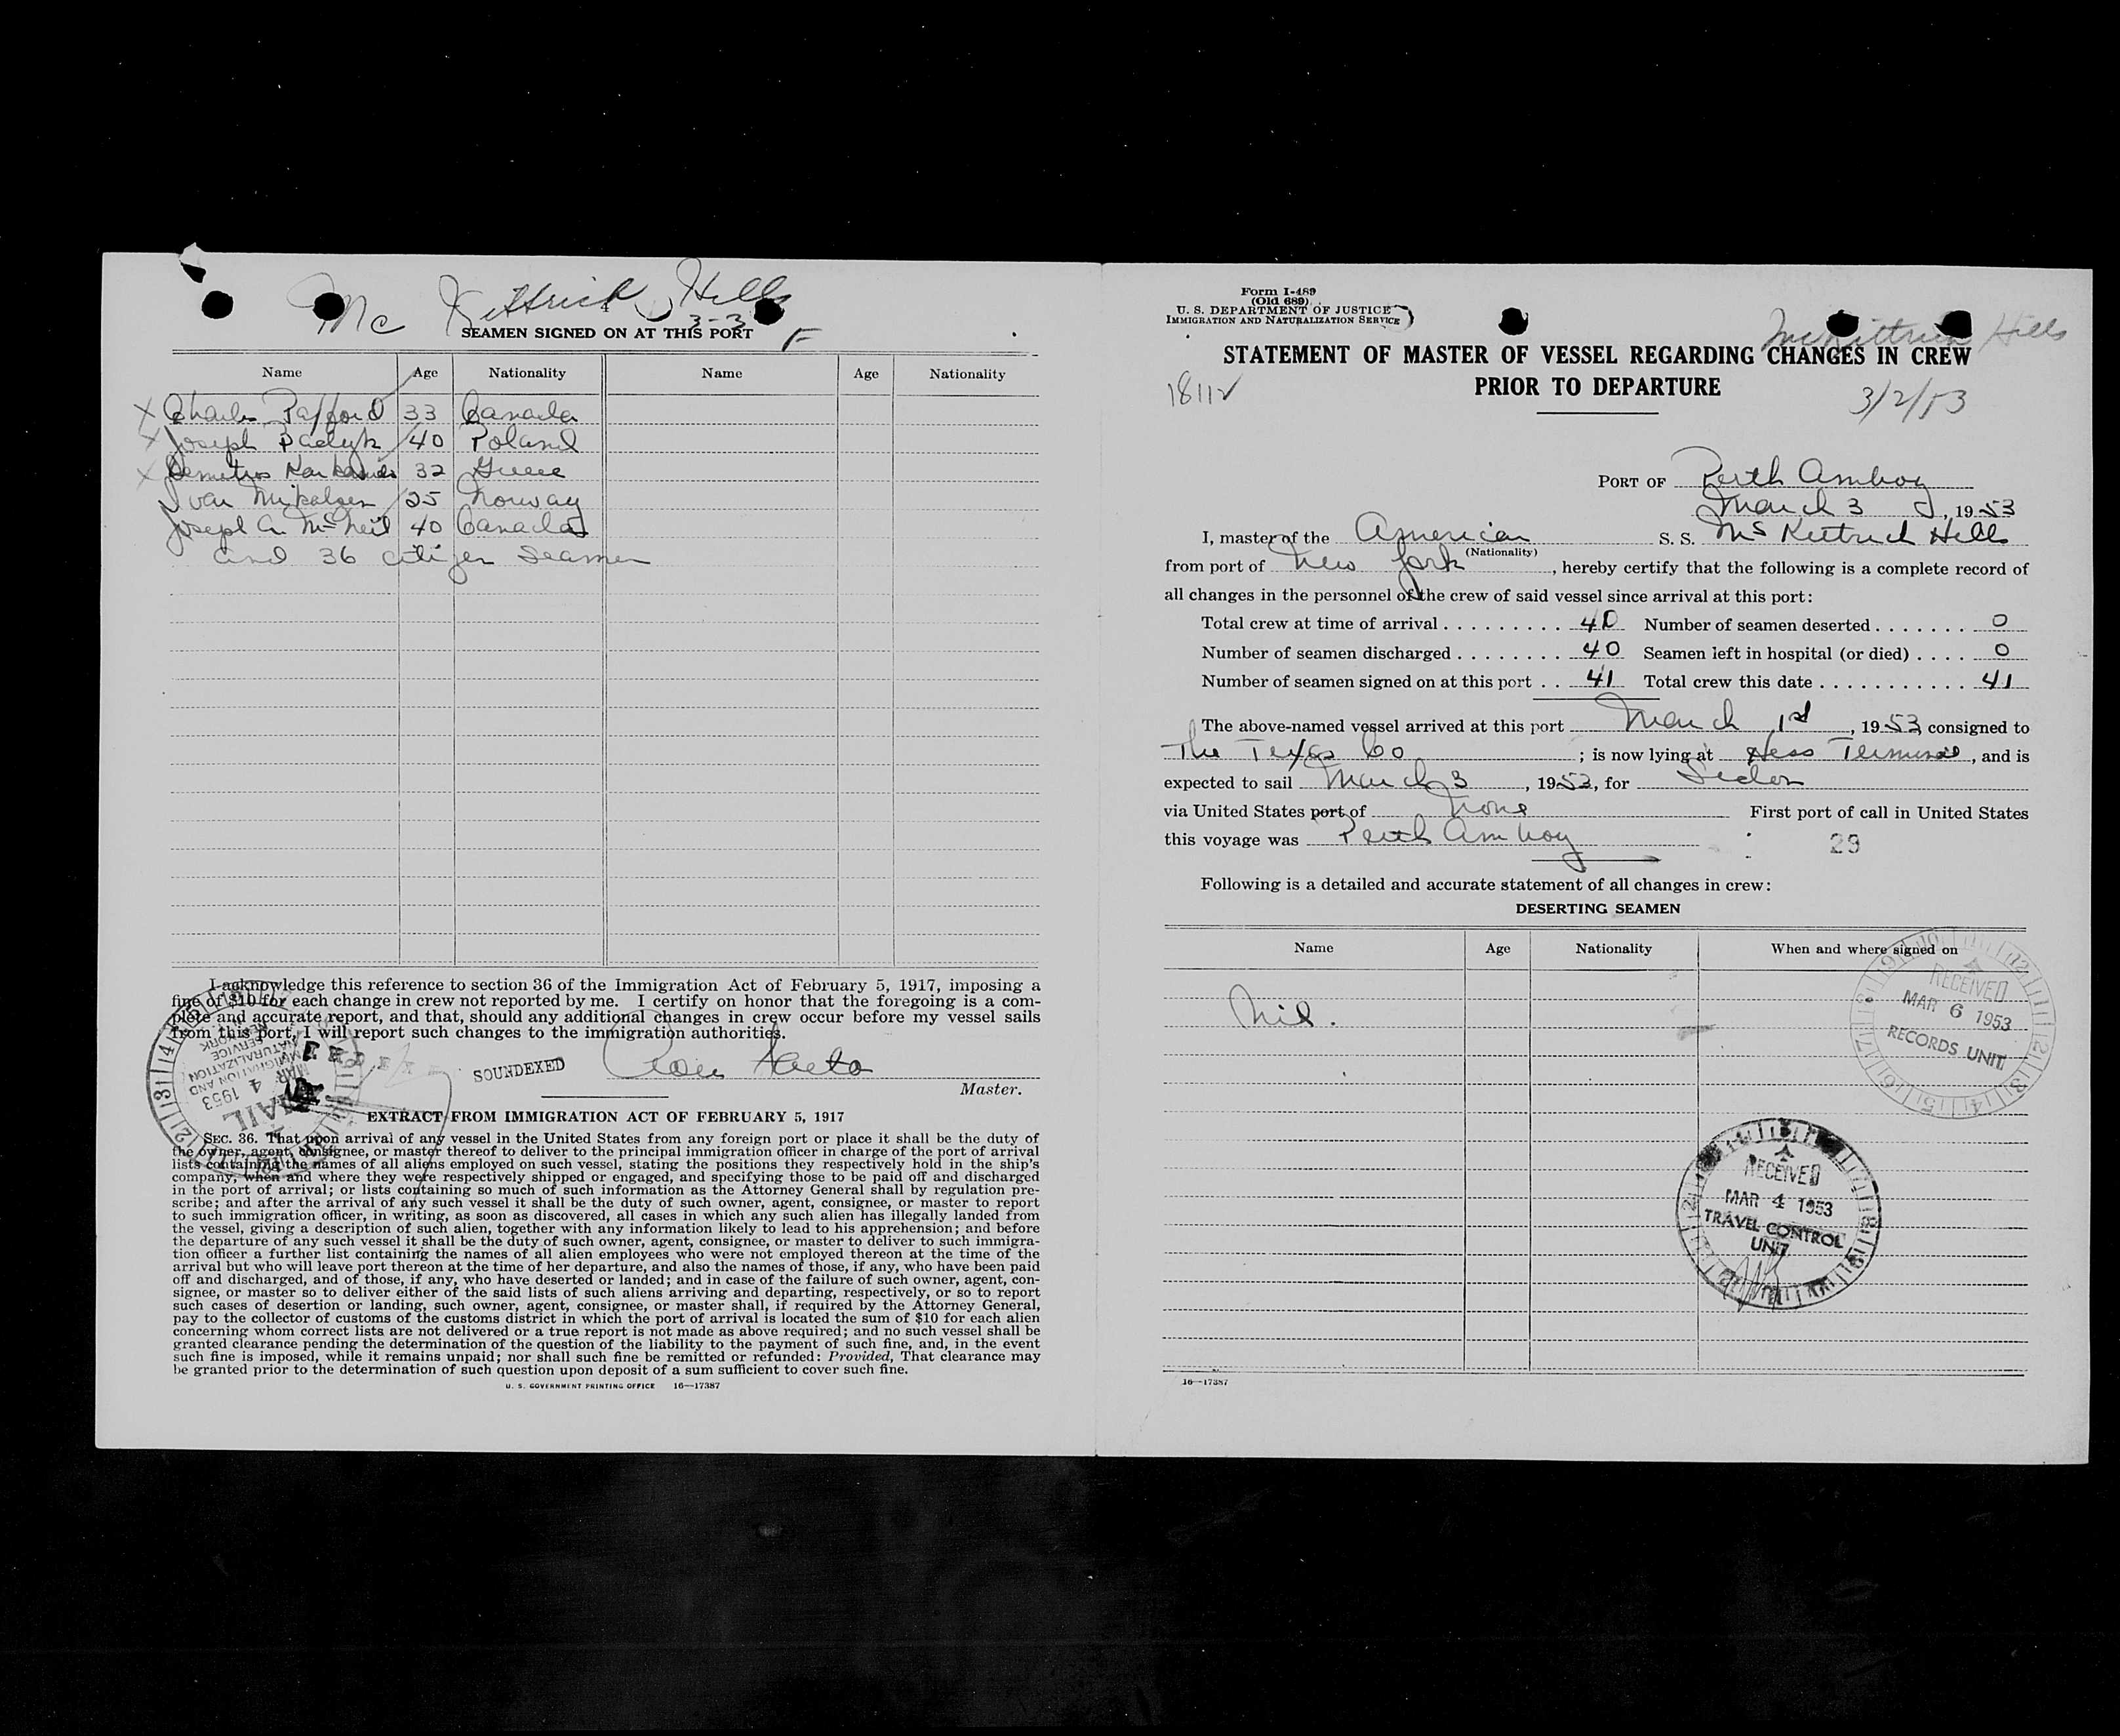 Mc Kittrick Hills
4
3-3
F
SEAMEN SIGNED ON AT THIS PORT
Name Age Nationality Name Age Nationality
X Charles Pafford 33 Canada
X Joseph 40 Poland
X Demetrios 32 Greece
Ivar Mikalsen 25 Norway
Joseph A. McNeil 40 Canada
and 36 citizen seamen
I acknowledge this reference to section 36 of the Immigration Act of February 5, 1917, imposing a
fine of $10 for each change in crew not reported by me. I certify on honor that the foregoing is a com-
plete and accurate report, and that, should any additional changes in crew occur before my vessel sails
from this port, I will report such changes to the immigration authorities.
SOUNDEXED
Master.
IMMIGRATION AND
NATURALIZATION
SERVICE
MAR 4 1953
MAIL
EXTRACT FROM IMMIGRATION ACT OF FEBRUARY 5, 1917
SEC. 36. That upon arrival of any vessel in the United States from any foreign port or place it shall be the duty of
the owner, agent, consignee, or master thereof to deliver to the principal immigration officer in charge of the port of arrival
lists containing the names of all aliens employed on such vessel, stating the positions they respectively hold in the ship's
company, when and where they were respectively shipped or engaged, and specifying those to be paid off and discharged
in the port of arrival; or lists containing so much of such information as the Attorney General shall by regulation pre-
scribe; and after the arrival of any such vessel it shall be the duty of such owner, agent, consignee, or master to report
to such immigration officer, in writing, as soon as discovered, all cases in which any such alien has illegally landed from
the vessel, giving a description of such alien, together with any information likely to lead to his apprehension; and before
the departure of any such vessel it shall be the duty of such owner, agent, consignee, or master to deliver to such immigra-
tion officer a further list containing the names of all alien employees who were not employed thereon at the time of the
arrival but who will leave port thereon at the time of her departure, and also the names of those, if any, who have been paid
off and discharged, and of those, if any, who have deserted or landed; and in case of the failure of such owner, agent, con-
signee, or master so to deliver either of the said lists of such aliens arriving and departing, respectively, or so to report
such cases of desertion or landing, such owner, agent, consignee, or master shall, if required by the Attorney General,
pay to the collector of customs of the customs district in which the port of arrival is located the sum of $10 for each alien
concerning whom correct lists are not delivered or a true report is not made as above required; and no such vessel shall be
granted clearance pending the determination of the question of the liability to the payment of such fine, and, in the event
such fine is imposed, while it remains unpaid; nor shall such fine be remitted or refunded: Provided, That clearance may
be granted prior to the determination of such question upon deposit of a sum sufficient to cover such fine.
U. S. GOVERNMENT PRINTING OFFICE 16—17387
Form I-489
(Old 689)
U. S. DEPARTMENT OF JUSTICE
IMMIGRATION AND NATURALIZATION SERVICE
McKittrick Hills
STATEMENT OF MASTER OF VESSEL REGARDING CHANGES IN CREW
PRIOR TO DEPARTURE
3/2/53
PORT OF Perth Amboy
March 3, 1953
I, master of the American S. S. McKittrick Hills
(Nationality)
from port of New York, hereby certify that the following is a complete record of
all changes in the personnel of the crew of said vessel since arrival at this port:
Total crew at time of arrival 40 Number of seamen deserted 0
Number of seamen discharged 40 Seamen left in hospital (or died) 0
Number of seamen signed on at this port 41 Total crew this date 41
The above-named vessel arrived at this port March 1st, 1953 consigned to
The Texas Co; is now lying at Hess Terminal, and is
expected to sail March 3, 1953, for Sidon
via United States port of None First port of call in United States
this voyage was Perth Amboy
29
Following is a detailed and accurate statement of all changes in crew:
DESERTING SEAMEN
Name Age Nationality When and where signed on
Nil.
RECEIVED
MAR 6 1953
RECORDS UNIT
RECEIVED
MAR 4 1953
TRAVEL CONTROL
UNIT
16—17387